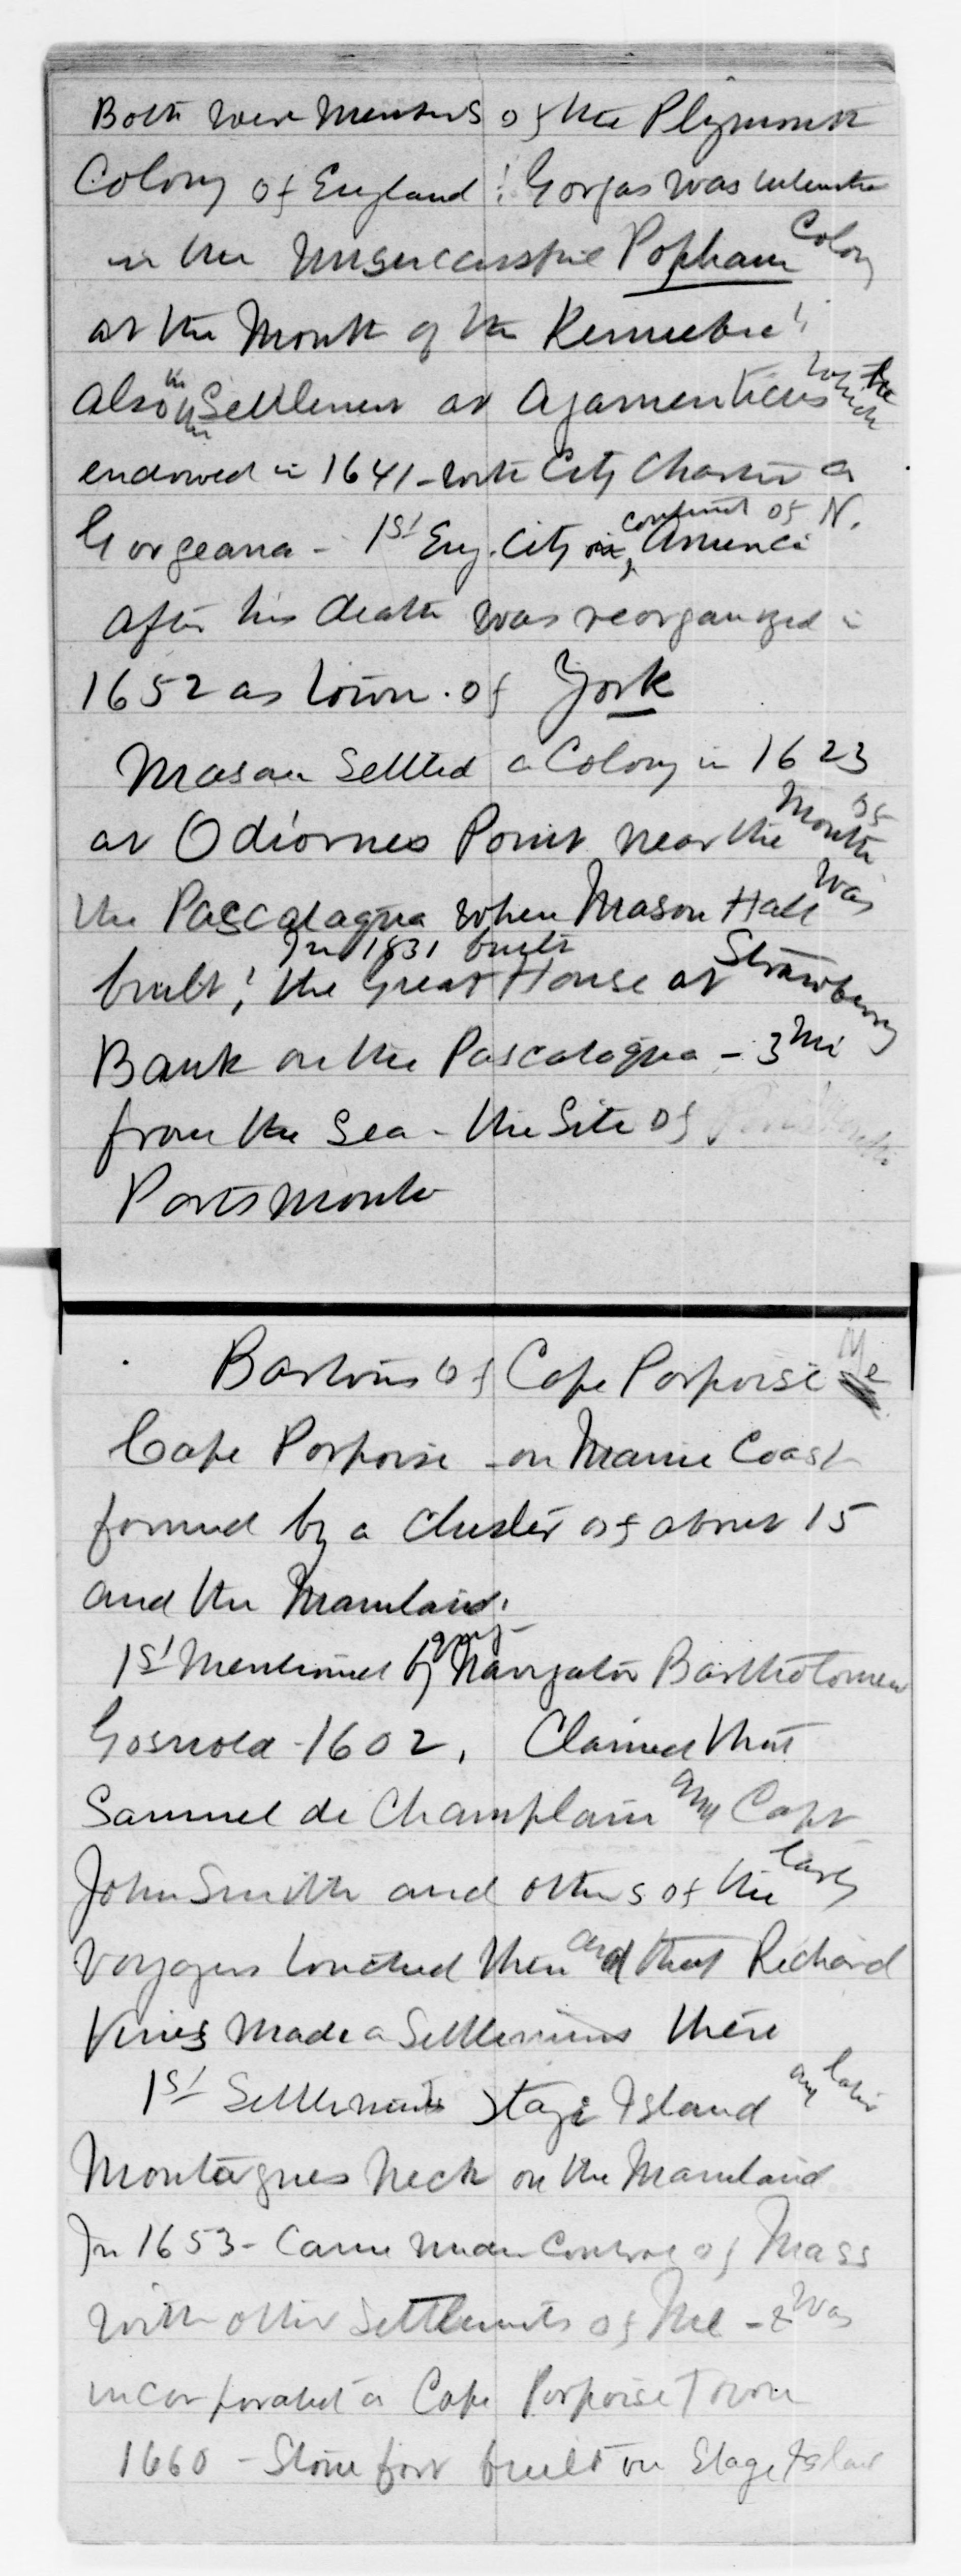 Both were Members of the Plymouth
Colony of England; Gorges was interested
in the Unsuccessful Popham Colony
at the Mouth of the Kennebec;
also in the Settlement at Agamenticus which he
endowed in 1641 - with City Charter as
Gorgeana - 1st Eng. City in continent of N. America
after his death was reorganized in
1652 as town of York
Mason Settled a Colony in 1623
at Odiornes Point near the Mouth of
the Pascataqua when Mason Hall was
built; In 1631 built the Great House at Strawberry
Bank on the Pascataqua - 3 mi
from the Sea - the Site of
Portsmouth
Bartons of Cape Porpoise Me
Cape Porpoise - on Maine Coast
formed by a cluster of about 15
and the Mainland.
1st Mentioned by Navigator Bartholomew
Gosnold - 1602. Claimed that
Samuel de Champlain and Capt
John Smith and others of the early
Voyagers touched there and that Richard
Vines made a Settlement there
1st Settlements Stage Island and later
Montagues Neck on the Mainland
In 1653 - Came under Control of Mass
with other Settlements of Me - & was
incorporated as Cape Porpoise Town
1660 - Stone fort built on Stage Island